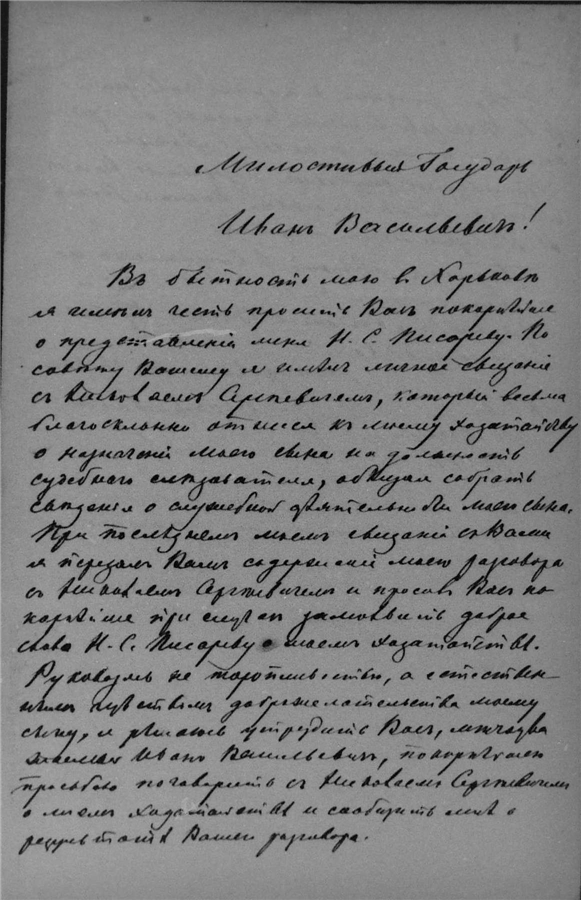 Милостивый Государь
Иванъ Васильевичъ!
Въ бытность мою в Харьковѣ
я имѣлъ честь просить Васъ покорнѣйше
о представленiи меня Н. С. Писареву. По
совѣту Вашему я имѣлъ личное свиданiе
съ Николаемъ Сергѣевичемъ, который весьма
благосклонно отнесся къ моему ходатайству
о назначенiи моего сына на должность
судебнаго слѣдователя, обѣщая собрать
свѣдѣнiя о служебной дѣятельности моего сына.
При послѣднемъ моемъ свиданiи съ Вами
я передалъ Вамъ содержанiе моего разговора
съ Николаемъ Сергѣевичемъ и просилъ Васъ по-
корнѣйше при случаѣ замолвить доброе
слово Н. С. Писареву о моемъ ходатайствѣ.
Руководясь не торопливостью, а естествен-
нымъ чувствомъ доброжелательства моему
сыну, я рѣшаюсь утруждать Васъ,
Иванъ Васильевичъ, покорнѣйшею
просьбою поговорить съ Николаемъ Сергѣевичемъ
о моемъ ходатайствѣ и сообщить мнѣ о
результатѣ Вашего разговора.